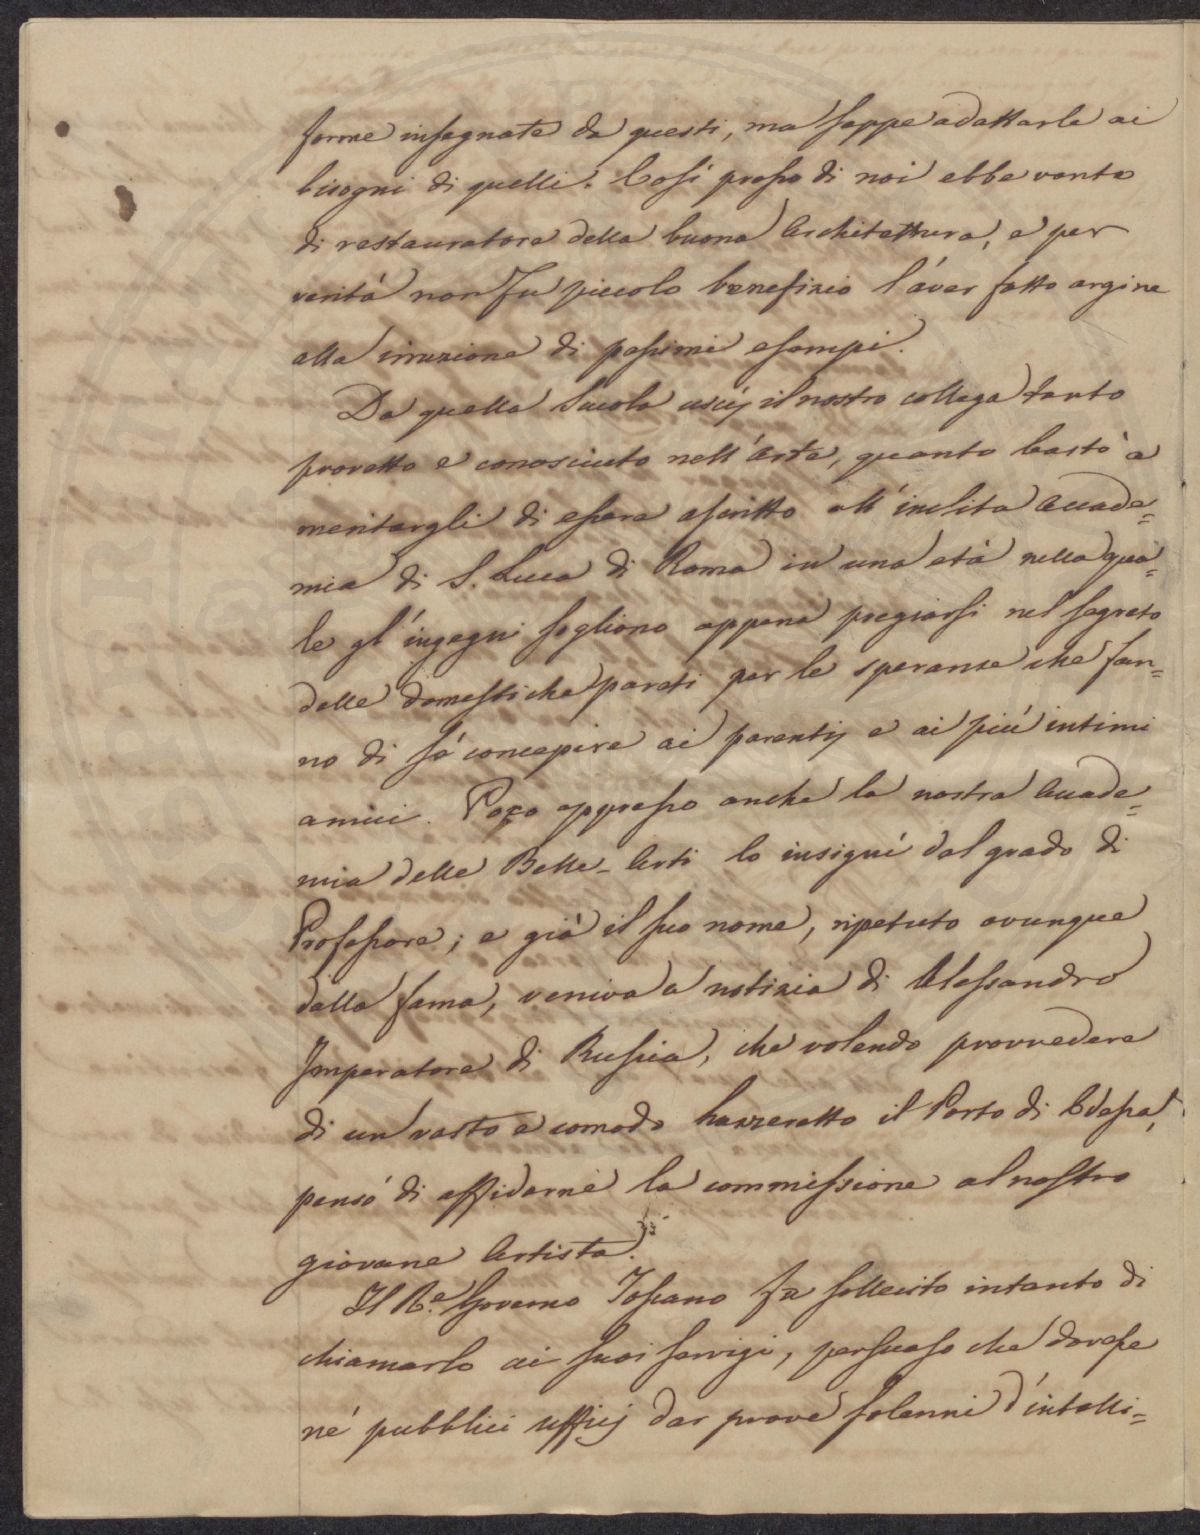 forme insegnate da questi, ma seppe adattarle ai
bisogni di quelli. Così presso di noi ebbe vanto
di restauratore della buona Architettura, e per
verità non fu piccolo benefizio l'aver fatto argine
alla irruzione di pessimi esempi.
Da quella Scuola uscij il nostro collega tanto
provetto e conosciuto nell'Arte, quanto bastò a
meritargli di essere ascritto all'inclita Accade=
mia di S. Luca di Roma in una età nella qua=
le gl'ingegni sogliono appena pregiarsi nel segreto
delle domestiche pareti per le speranze che fan=
no di sé concepire ai parentij e ai più intimi
amici. Poco appresso anche la nostra Accade=
mia delle Belle-Arti lo insigni del grado di
Professore; e già il suo nome, ripetuto ovunque
dalla fama, veniva a notizia di Alessandro
Imperatore di Russia, che volendo provvedere
di un vasto e comodo lazzeretto il Porto di Odessa,
pensò di affidarne la commissione al nostro
giovane Artista.
Il R.e Governo Toscano fu sollecito intanto di
chiamarlo ai suoi servigi, persuaso che dovesse
né pubblici ufficj dar prove solenni d'intelli=